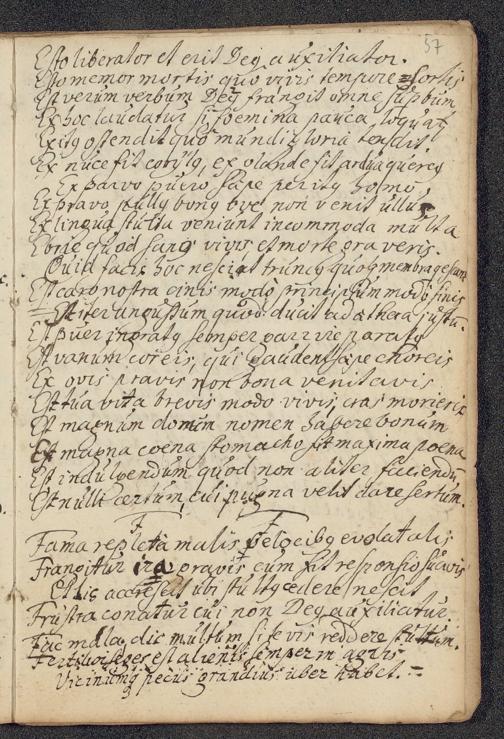 57
Esto liberator et erit Deg auxiliator.
Esto memor mortis quo vivis tempore sortis
Est verum verbum Deg frangit omne supbum
Ex hoc laudatur si foemina pauca loquat
Exitg ostendit quo mundi gloria tendit
Ex nuce fit corylg, ex glande fit ardua quercg
Ex parvo puero sæpe peritg homo
Ex pravo pullg bong ove non venit ullus
Ex lingua stulta veniunt incommoda multa
Ebrie quod sang vivis et morte gravaris.
Quid facis hoc nesciat truncg quog membra
Est caro nostra cinis modo principium modo finis
Est iter angustum quod ducit ad justu.
Est puer ingratg semper parvie paratg
Est vanum coreis, qui gaudent sæpe choreis
Ex ovis pravis non bona venit avis
Est tua vita brevis modo vivis, cras morieris
Est magnum domini nomen habere bonum
Ex magna coena stomacho fit maxima poena
Est indulgendum quod non aliter faciendu,
Est nulli certum, cui pugna velit dare sertum.
F F
Fama repleta malis velocibg evolat alis
Frangitur ira pravis cum fit responsio suavis
Et lis accrescit ubi stultg cedere nescit
Frustra conatur cui non Deg auxiliatur
Fac mala, dic multum si te vis reddere stultum.
Fertilior seges est alienis semper in agris
Vicinumg pecus grandius uber habet.